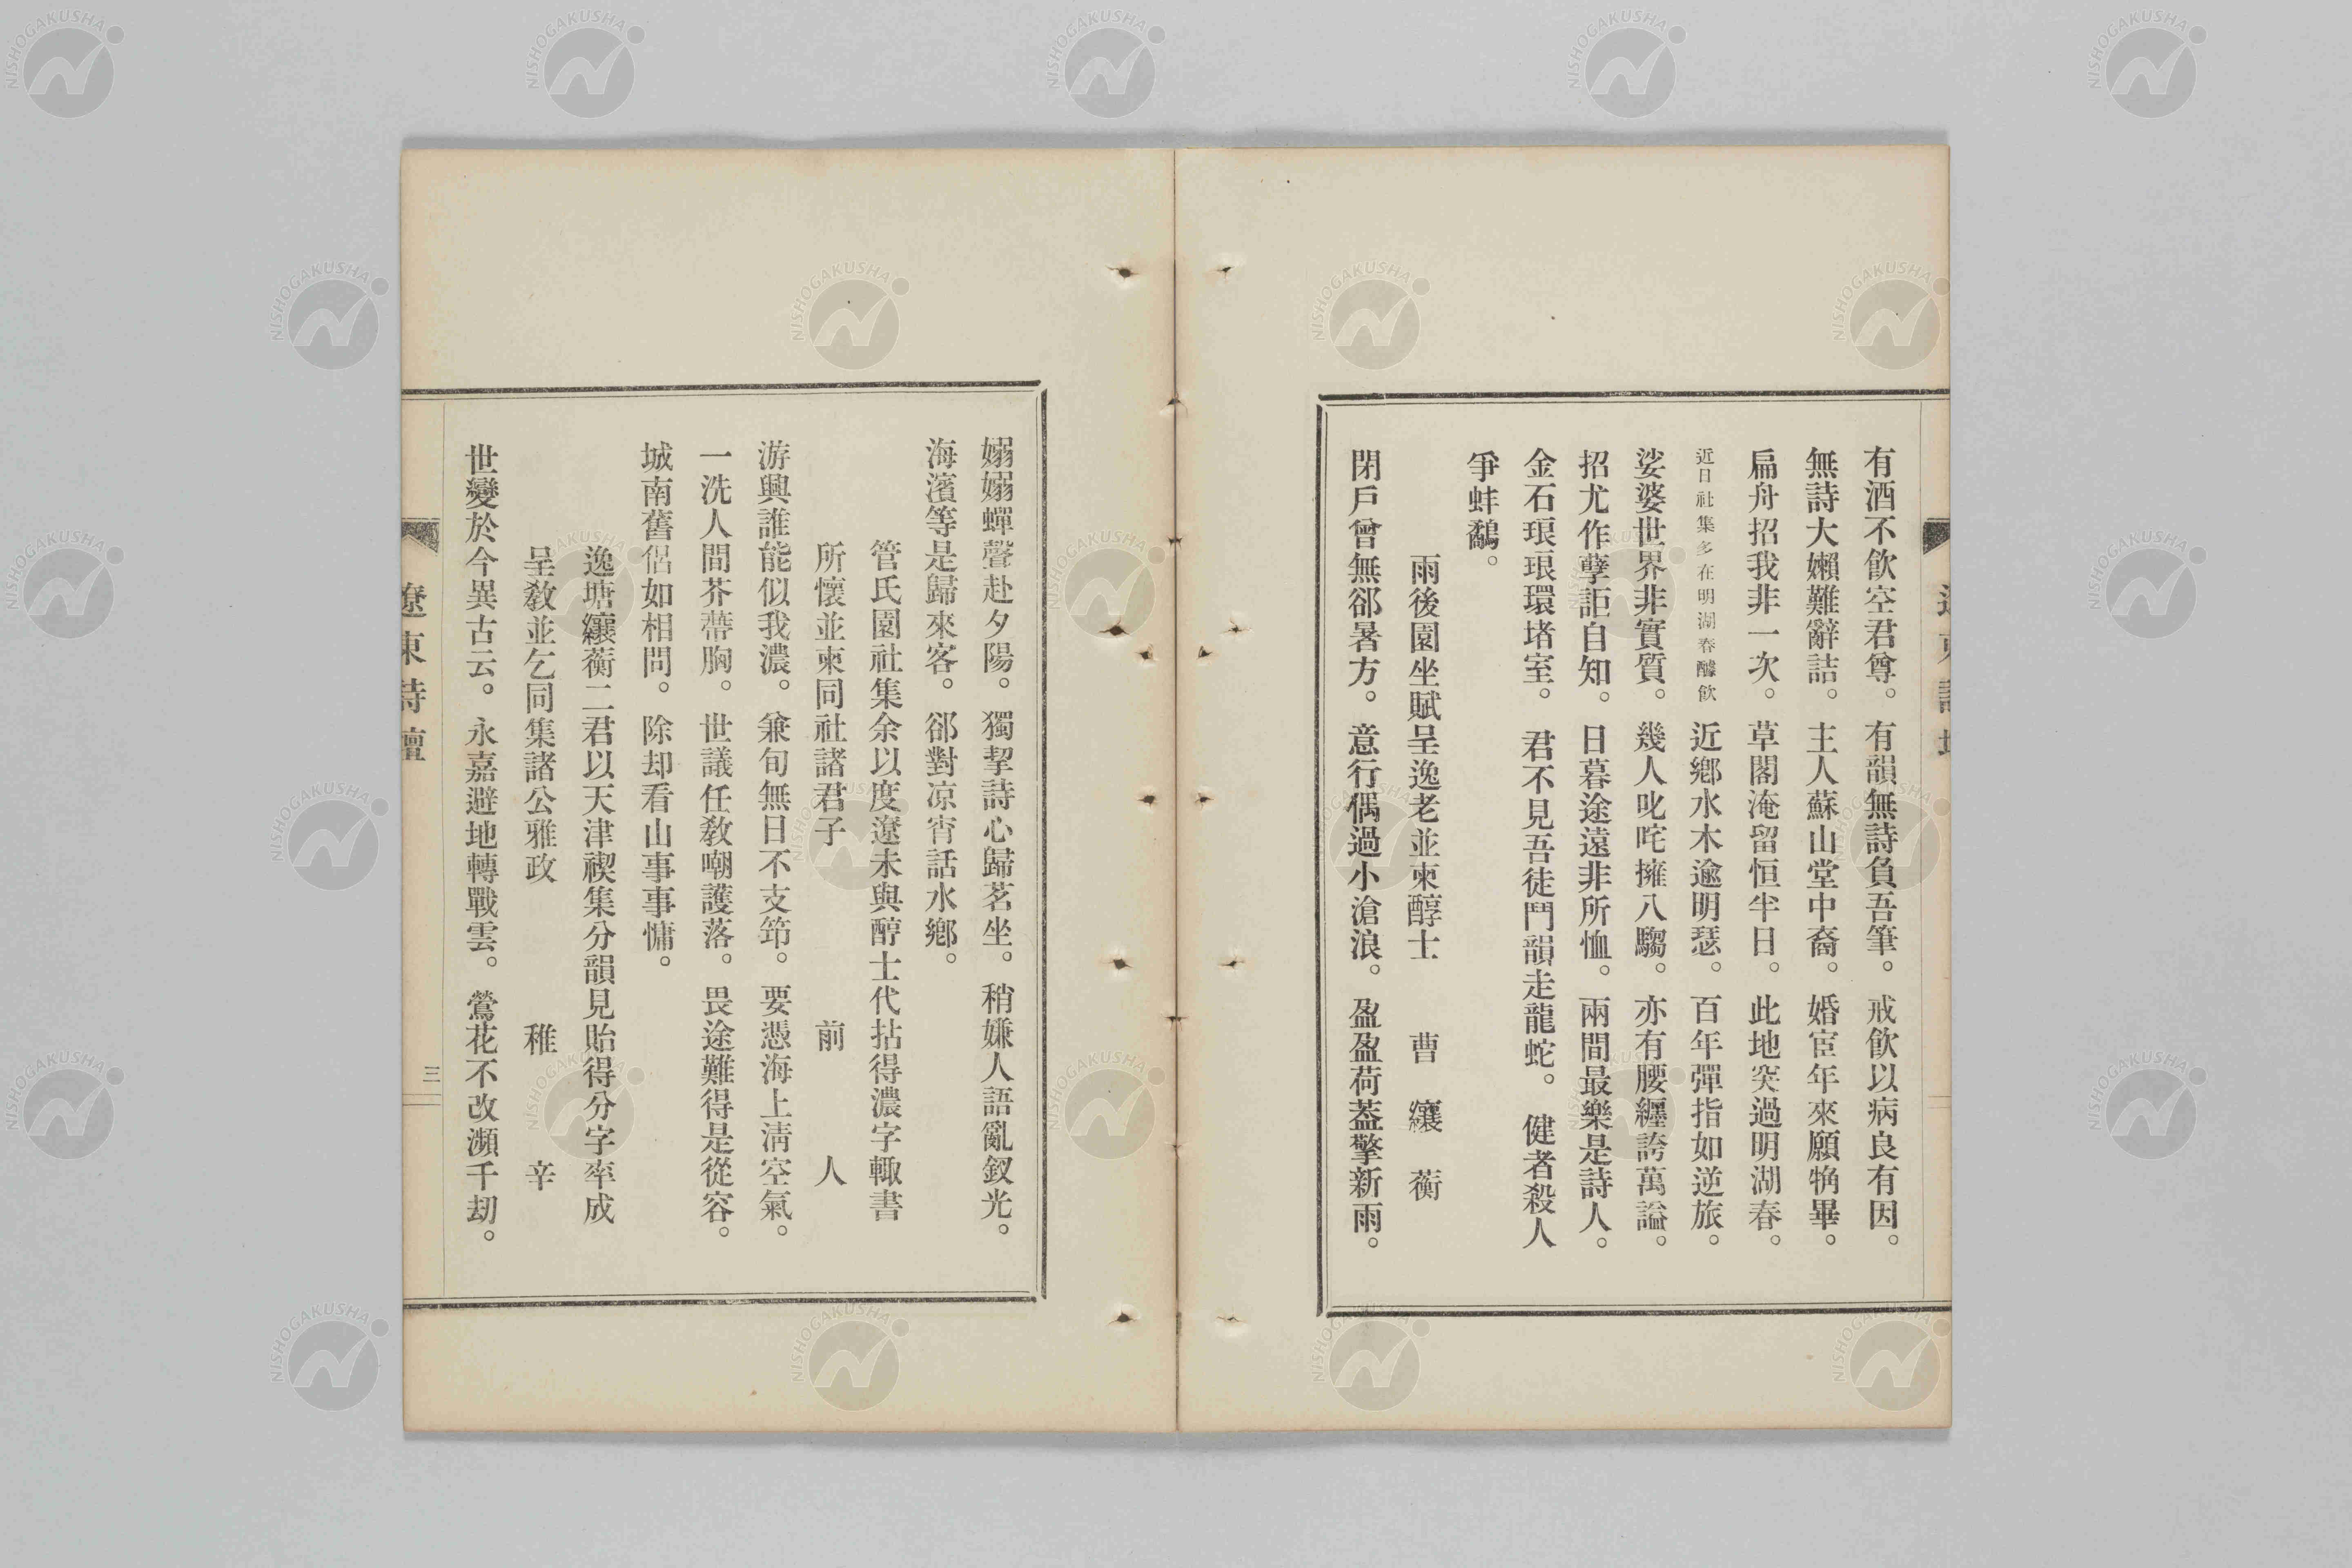 有酒不飮空君尊。有韻無詩負吾筆。戒飮以病良有因。
無詩大嬾難辭詰。主人蘇山堂中裔。婚宦年來願犓畢。
扁舟招我非一次。草閣淹留恒半日。此地突過明湖春。
近日社集多在明湖春醵飮 近鄕水木逾明瑟。百年彈指如逆旅。
娑婆世界非實質。幾人叱咤擁八騶。亦有腰纏誇萬謚。
招尤作孽詎自知。日暮途遠非所恤。兩間最樂是詩人。
金石琅琅環堵室。君不見吾徒鬥韻走龍蛇。健者殺人
爭蚌鷸。
雨後園坐賦呈逸老並柬醇士 曹纕蘅
閉戶曾無郤暑方。意行偶過小滄浪。盈盈荷葢擎新雨。
嫋嫋蟬聲赴夕陽。獨挈詩心歸茗坐。稍嫌人語亂釵光。
海濱等是歸來客。郤對凉宵話水鄕。
管氏園社集余以度遼未與醇士代拈得濃字輙書
所懷並柬同社諸君子 前人
游興誰能似我濃。兼旬無日不支筇。要憑海上淸空氣。
一洗人間芥蔕胸。世議任敎嘲護落。畏途難得是從容。
城南舊侶如相問。除却看山事事慵。
逸塘纕蘅二君以天津禊集分韻見貽得分字率成
呈敎並乞同集諸公雅政 稚辛
世變於今異古云。永嘉避地轉戰雲。鶯花不改瀕千刧。
遼東詩壇
三
NISHOGAKUSHA